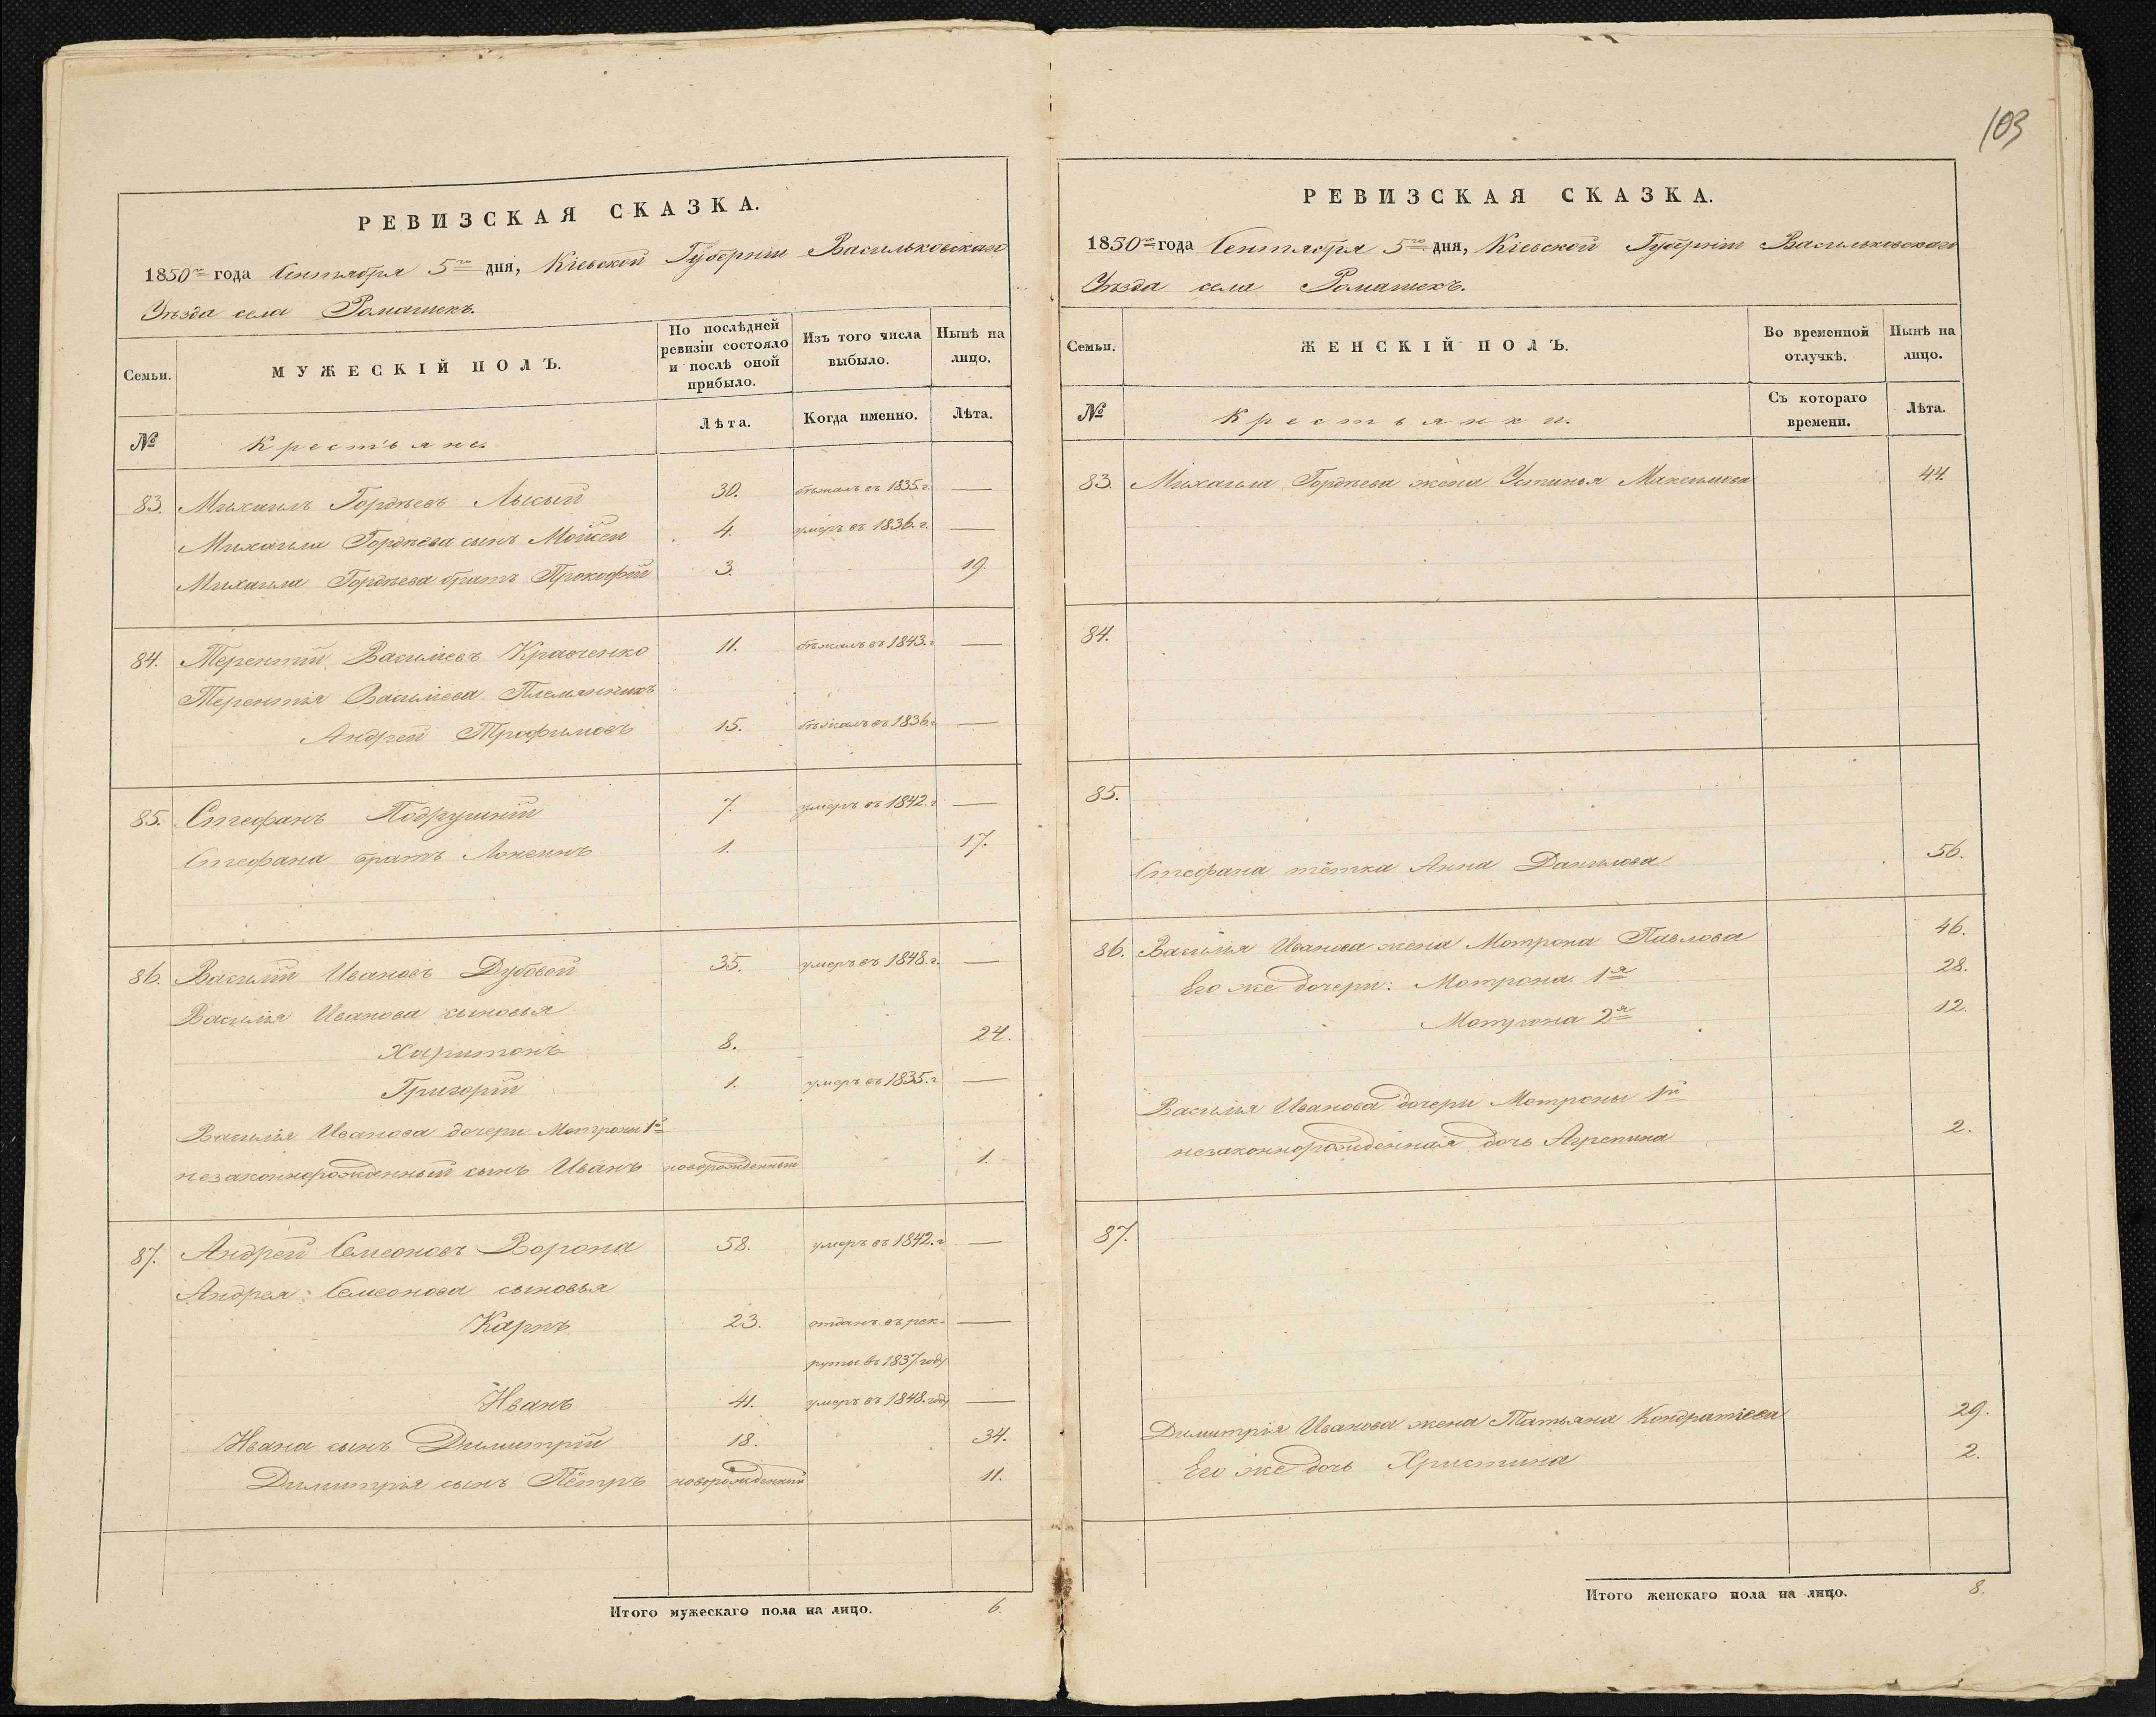 103
РЕВИЗСКАЯ СКАЗКА.
1850го года Сентября 5го дня, Кіевской Губерніи Васильковскаго
Уѣзда села Ромашекъ.
Семьи.
МУЖЕСКІЙ ПОЛЪ.
По послѣдней ревизіи состояло и послѣ оной прибыло.
Изъ того числа выбыло.
Нынѣ на лицо.
№
Крестьяне.
Лѣта.
Когда именно.
Лѣта.
83. Михаилъ Гордѣевъ Лысый 30. бѣжалъ въ 1835.г. —
Михаила Гордѣева сынъ Мойсей 4. умеръ въ 1836.г. —
Михаила Гордѣева братъ Прокофій 3. 19.
84. Терентій Василіевъ Кравченко 11. бѣжалъ въ 1843.г —
Терентія Василіева Племянникъ
Андрей Трофимовъ 15. бѣжалъ въ 1836.г —
85. Стефанъ Подрушній 7. умеръ въ 1842.г —
Стефана братъ Лонгинъ 1. 17.
86. Василій Ивановъ Дубовой 35. умеръ въ 1848.г. —
Василія Иванова сыновья
Харитонъ 8. 24.
Григорій 1. умеръ въ 1835.г —
Василія Иванова дочери Мотроны 1й
незаконнорожденный сынъ Иванъ новорожденный 1.
87. Андрей Семеоновъ Ворона 58. умеръ въ 1842.г —
Андрея Семеонова сыновья
Карпъ 23. отданъ въ рек- —
руты въ 1837.году
Иванъ 41. умеръ въ 1848.году —
Ивана сынъ Димитрій 18. 34.
Димитрія сынъ Пётръ новорожденный 11.
Итого мужескаго пола на лицо. 6.
РЕВИЗСКАЯ СКАЗКА.
1850го года Сентября 5го дня, Кіевской Губерніи Васильковскаго
Уѣзда села Ромашекъ.
Семьи.
ЖЕНСКІЙ ПОЛЪ.
Во временной отлучкѣ.
Нынѣ на лицо.
№
Крестьянки.
Съ котораго времени.
Лѣта.
83. Михаила Гордѣева жена Устинья Максимова 44.
84.
85.
Стефана тётка Анна Данилова 56.
86. Василія Иванова жена Мотрона Павлова 46.
Его же дочери: Мотрона 1я 28.
Мотрона 2я 12.
Василія Иванова дочери Мотроны 1й
незаконнорожденная дочь Агрепина 2.
87.
Димитрія Иванова жена Татьяна Кондратіева 29.
Его же дочь Христина 2.
Итого женскаго пола на лицо. 8.